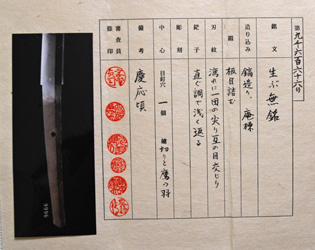 第九千六百六十六号
銘文
生ぶ無銘
造り込み
鎬造り、庵棟
鍛
板目詰む
刃紋
湾れに一団の尖り互の目交じり
鋩子
直ぐ調で浅く返る
彫刻
中心
目釘穴 一個 鑢 切りと鷹の羽
備考
慶応頃
審査員
指印
9666